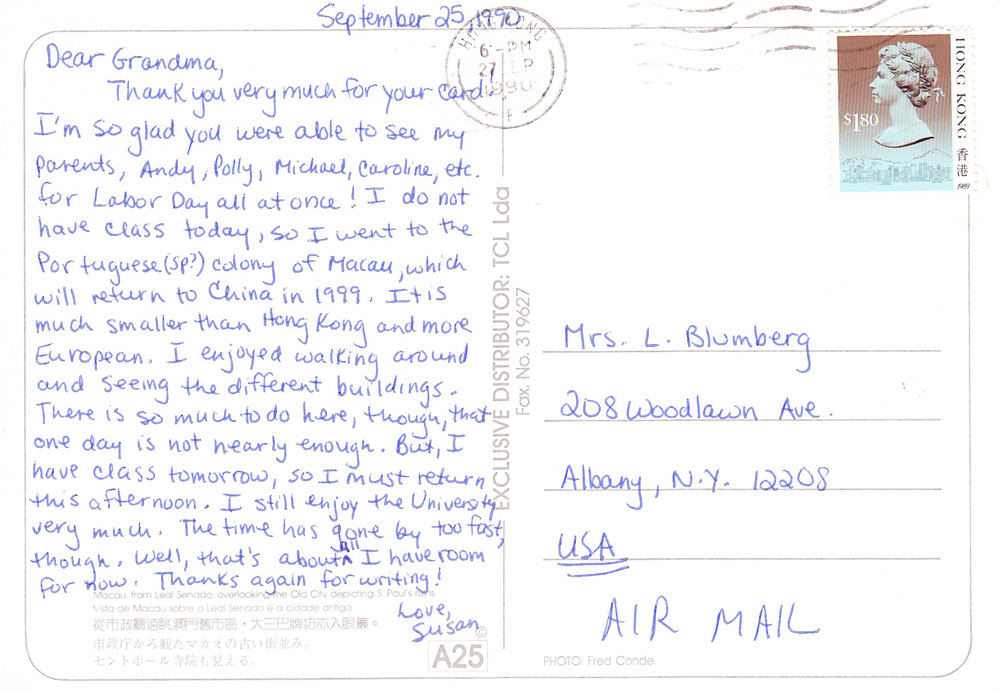 September 25, 1990
Dear Grandma,
Thank you very much for your card!
I'm so glad you were able to see my
parents, Andy, Polly, Michael, Caroline, etc.
for Labor Day all at once! I do not
have class today, so I went to the
Portuguese (sp?) colony of Macau, which
will return to China in 1999. It is
much smaller than Hong Kong and more
European. I enjoyed walking around
and seeing the different buildings.
There is so much to do here, though, that
one day is not nearly enough. But, I
have class tomorrow, so I must return
this afternoon. I still enjoy the University
very much. The time has gone by too fast,
though. Well, that's about all I have room
for now. Thanks again for writing!
Love,
Susan
Macau, from Leal Senado, overlooking the Old City depicting S. Paul's ruins
Vista de Macau sobre o Leal Senado e a cidade antiga
從市政廳遠眺澳門舊市區，大三巴牌坊亦入眼簾。
市政庁から観たマカオの古い街並み。
セントポール寺院も見える。
©
A25
EXCLUSIVE DISTRIBUTOR: TCL Lda
Fax. No. 319627
HONG KONG
6 - PM
27 SEP
1990
F
$1.80
HONG KONG 香港
1989
Mrs. L. Blumberg
208 Woodlawn Ave.
Albany, N.Y. 12208
USA
AIR MAIL
PHOTO: Fred Conde